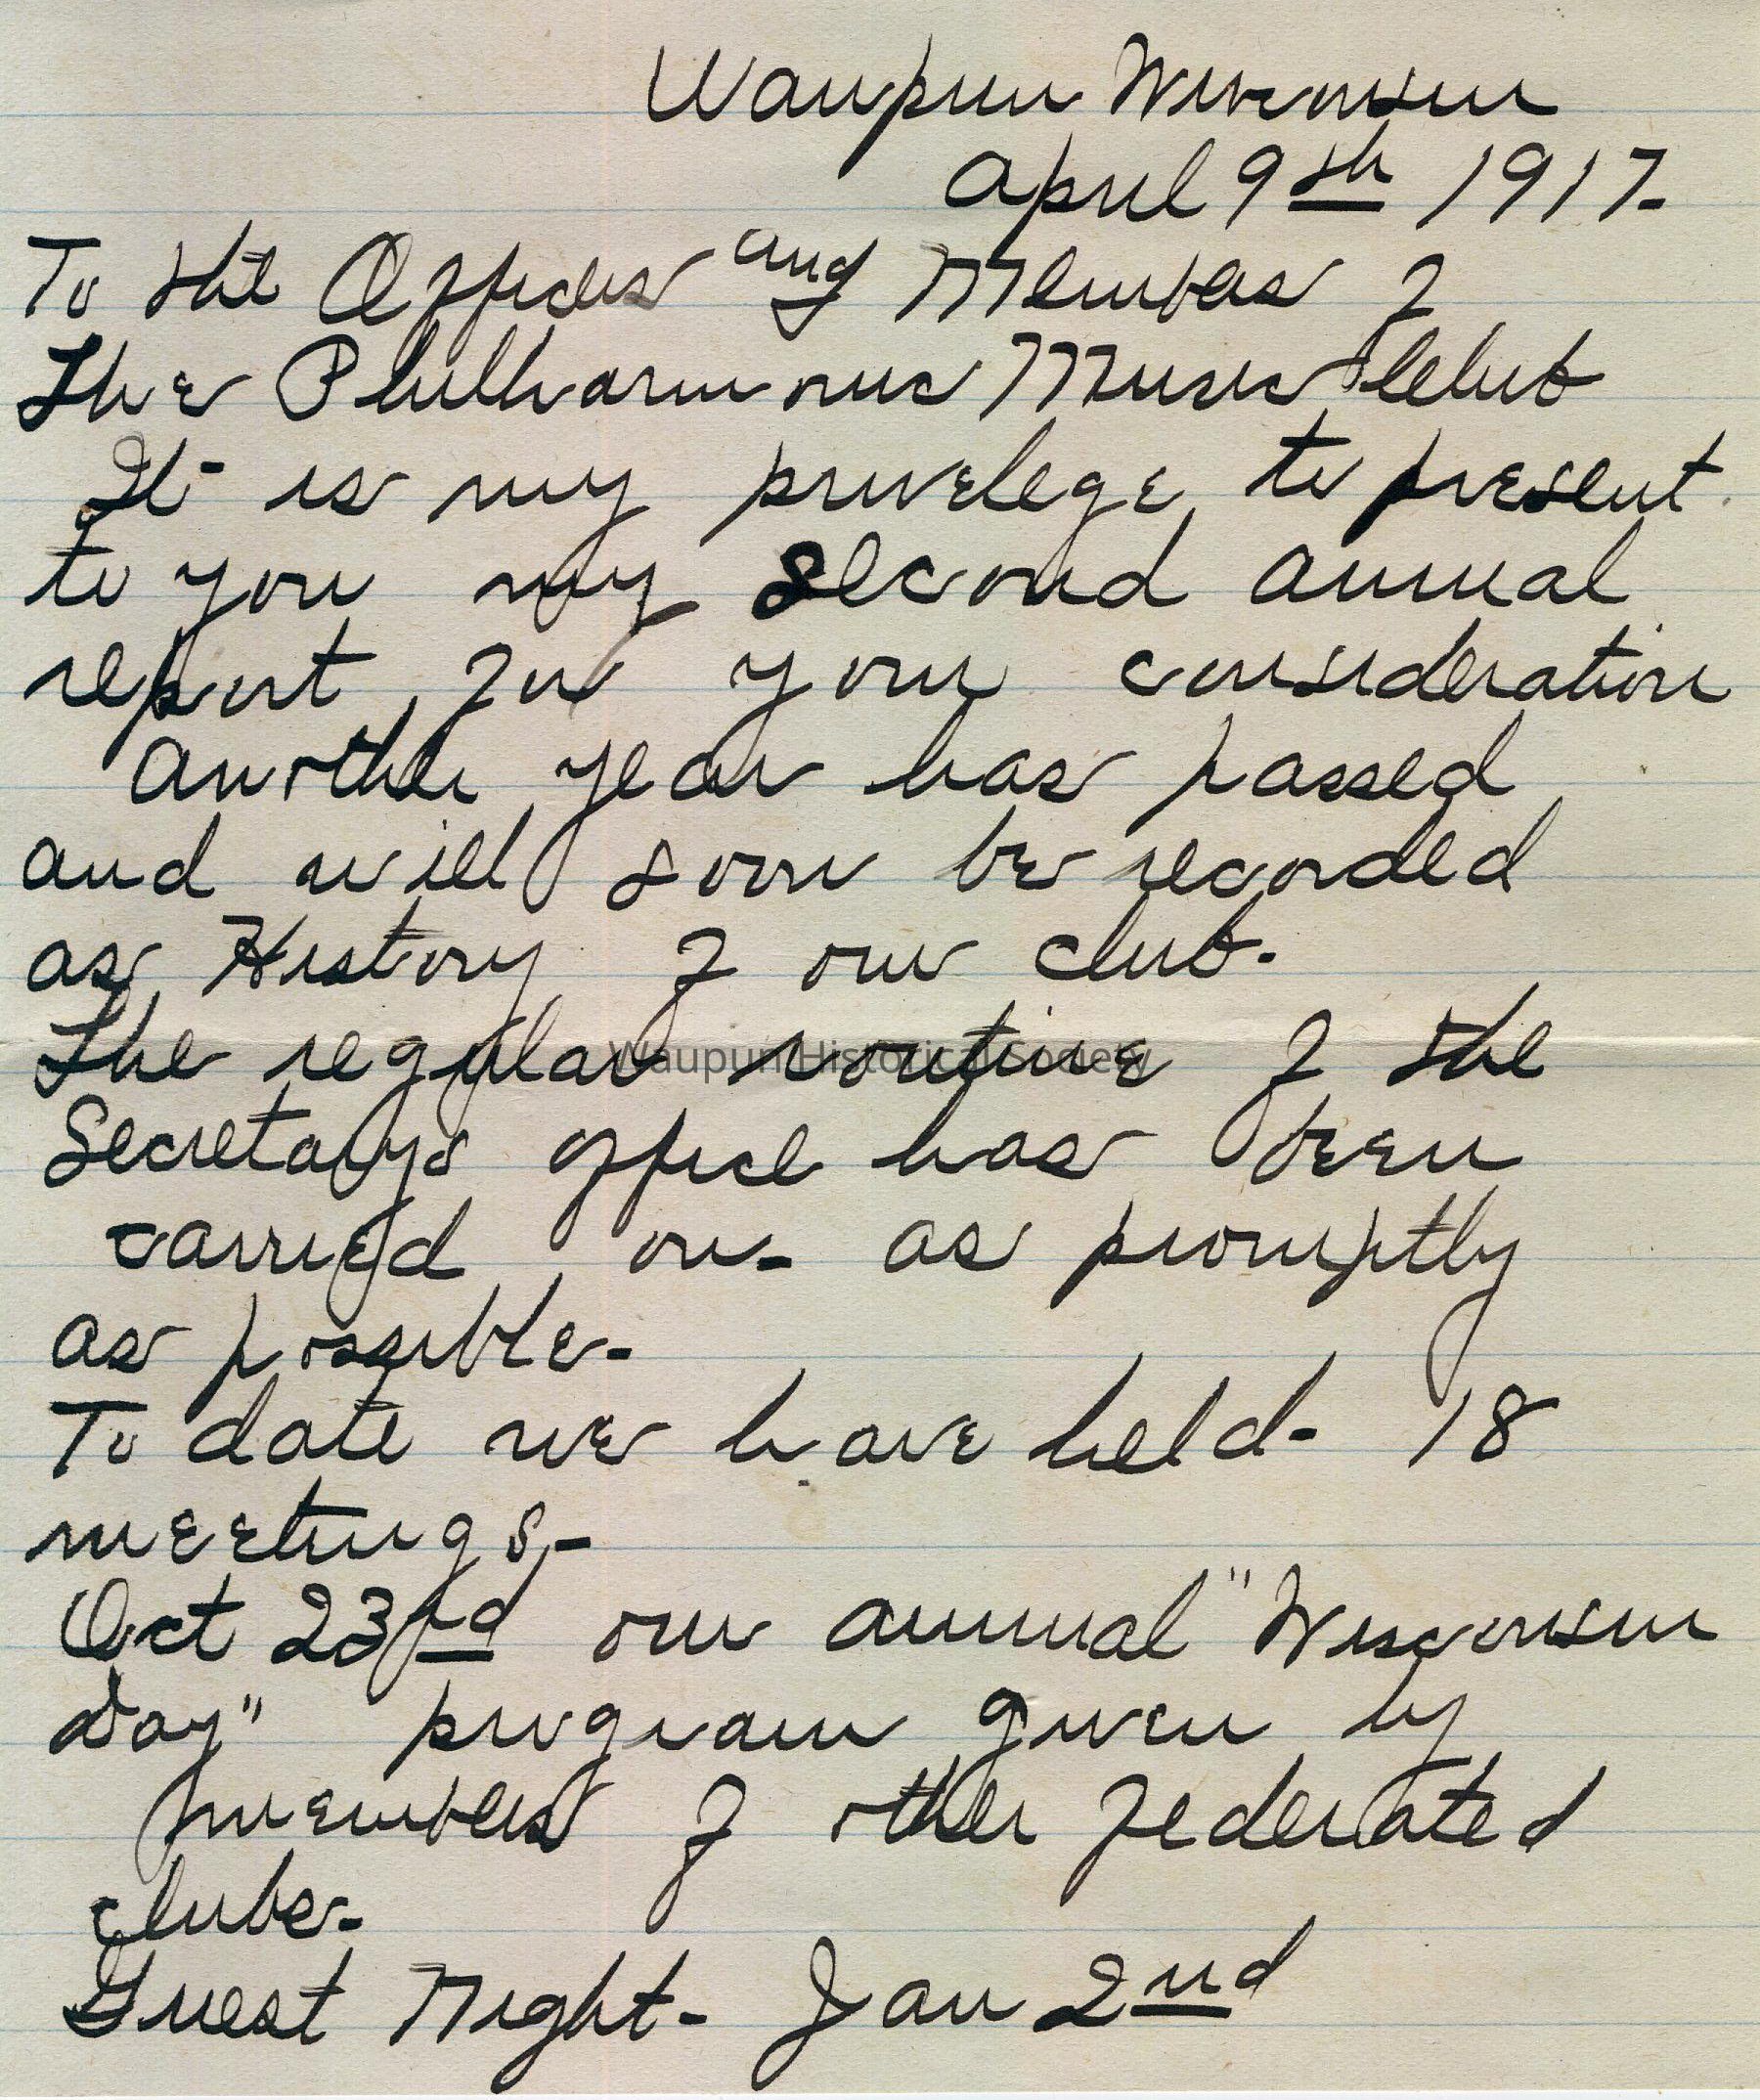 Waupun Wisconsin
April 9th 1917-
To the Officers and Members of
The Philharmonic Music Club
It is my privelege to present
to you my second annual
report for your consideration
Another year has passed
and will soon be recorded
as History of our club.
The regular routine of the
Waupun Historical Society
Secretarys office has been
carried on- as promptly
as possible-
To date we have held- 18
meetings,-
Oct 23rd our annual "Wisconsin
Day" program given by
members of other Federated
clubs-
Guest Night- Jan 2nd